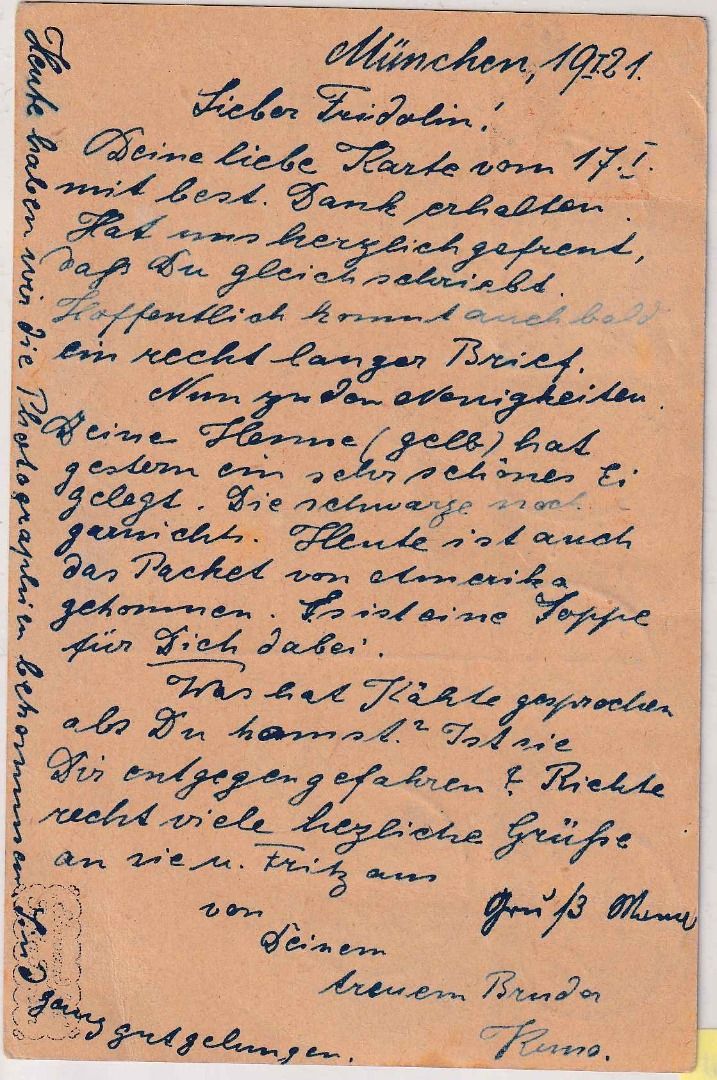 München, 19I21.
Lieber Fridolin!
Deine liebe Karte vom 17.I.
mit best. Dank erhalten.
Hat uns herzlich gefreut,
daß Du gleich schriebt.
Hoffentlich kommt auch bald
ein recht langer Brief.
Nun zu den Neuigkeiten.
Deine Henne (gelb) hat
gestern ein sehr schönes Ei
gelegt. Die schwarze noch
garnichts. Heute ist auch
das Packet von Amerika
gekommen. Es ist eine Joppe
für Dich dabei.
Was hat Kähte gesprochen
als Du kamst? Ist sie
Dir entgegengefahren? Richte
recht viele hezliche Grüße
an sie u. Fritz aus
von
Gruß Mama
Deinem
treuem Bruder
Heute haben wir die Photographien bekommen. Sind
ganz gut gelungen.